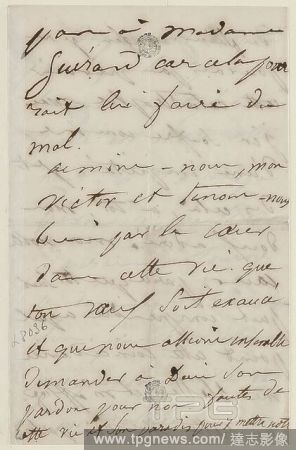 pas à madame
Guérard car cela pour
rait lui faire du
mal.
aimons-nous mon
victor et tenons-nous
bien par le cœur
dans cette vie. que
ton vœu soit exaucé
et que nous allions ensemble
demander à Dieu son
pardon pour nos fautes de
cette vie et son paradis pour y mettre nos
28036
TPG
www.tpgnews.com / 達志影像